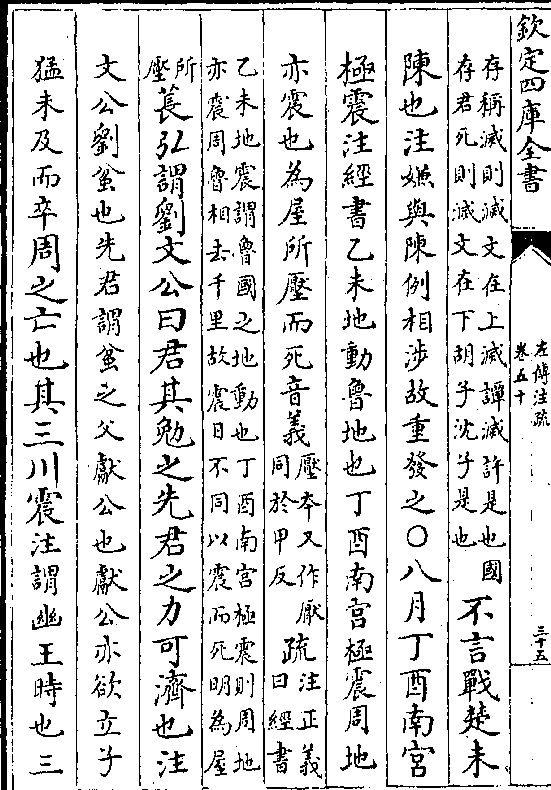 欽定四庫全書
左傳注疏
卷五十
三十五
存稱滅則滅文在上滅譚滅許是也國
存君死則滅文在下胡子沈子是也
不言戰楚未
陳也注嫌與陳例相涉故重發之○八月丁酉南宮
極震注經書乙未地動魯地也丁酉南宮極震周地
亦震也為屋所壓而死音義
壓本又作厭
同於甲反
疏
注正義
曰經書
乙未地震謂魯國之地動也丁酉南宮極震則周地
亦震周魯相去千里故震日不同以震而死明為屋
所
壓
萇弘謂劉文公曰君其勉之先君之力可濟也注
文公劉蚠也先君謂蚠之父獻公也獻公亦欲立子
猛未及而卒周之亡也其三川震注謂幽王時也三